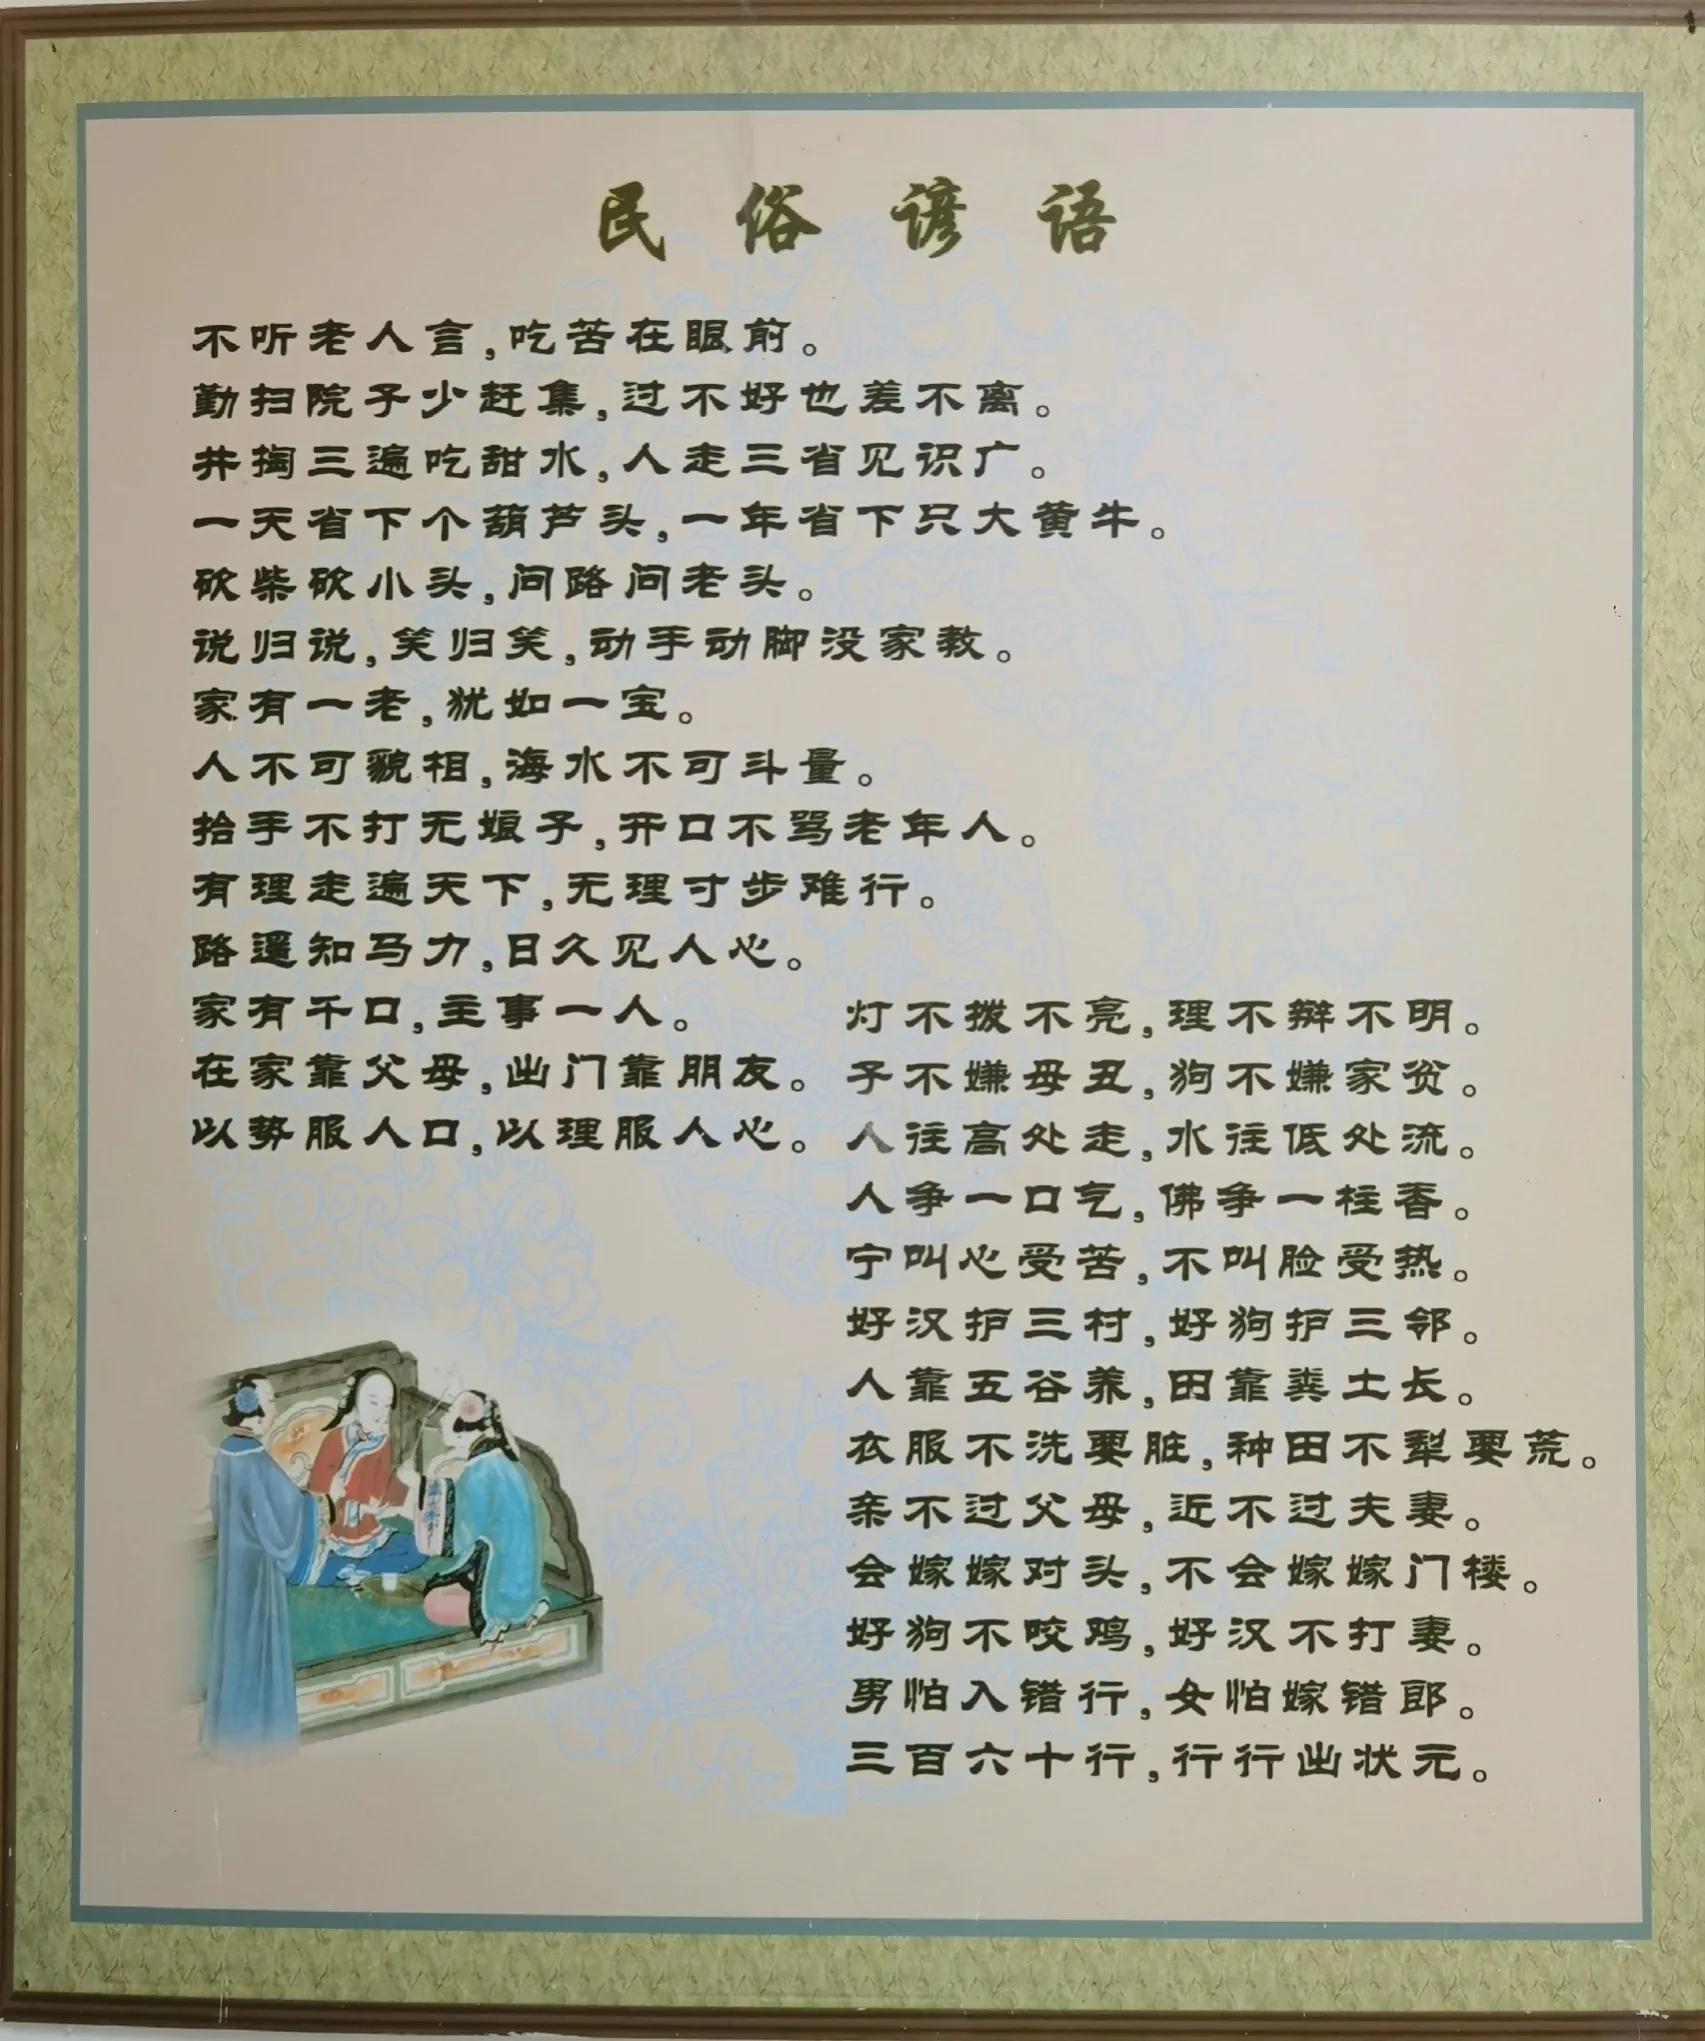 民俗谚语
不听老人言,吃苦在眼前。
勤扫院子少赶集,过不好也差不离。
井掏三遍吃甜水,人走三省见识广。
一天省下个葫芦头,一年省下只大黄牛。
砍柴砍小头,问路问老头。
说归说,笑归笑,动手动脚没家教。
家有一老,犹如一宝。
人不可貌相,海水不可斗量。
抬手不打无娘子,开口不骂老年人。
有理走遍天下,无理寸步难行。
路遥知马力,日久见人心。
家有千口,主事一人。
在家靠父母,出门靠朋友。
以势服人口,以理服人心。
灯不拨不亮,理不辩不明。
子不嫌母丑,狗不嫌家贫。
人往高处走,水往低处流。
人争一口气,佛争一柱香。
宁叫心受苦,不叫脸受热。
好汉护三村,好狗护三邻。
人靠五谷养,田靠粪土长。
衣服不洗要脏,种田不犁要荒。
亲不过父母,近不过夫妻。
会嫁嫁对头,不会嫁嫁门楼。
好狗不咬鸡,好汉不打妻。
男怕入错行,女怕嫁错郎。
三百六十行,行行出状元。